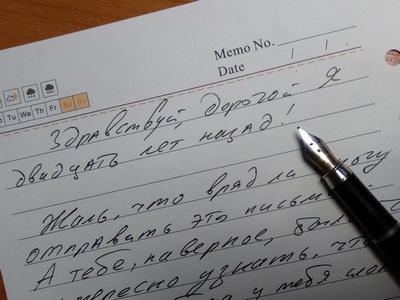 Memo No.
Date / /
Tu We Th Fr Sa Su
Здравствуй, дорогой Я
двадцать лет назад!
Жаль, что вряд ли могу
отправить это письмо.
А тебе, наверное, было
узнать, что
у тебя